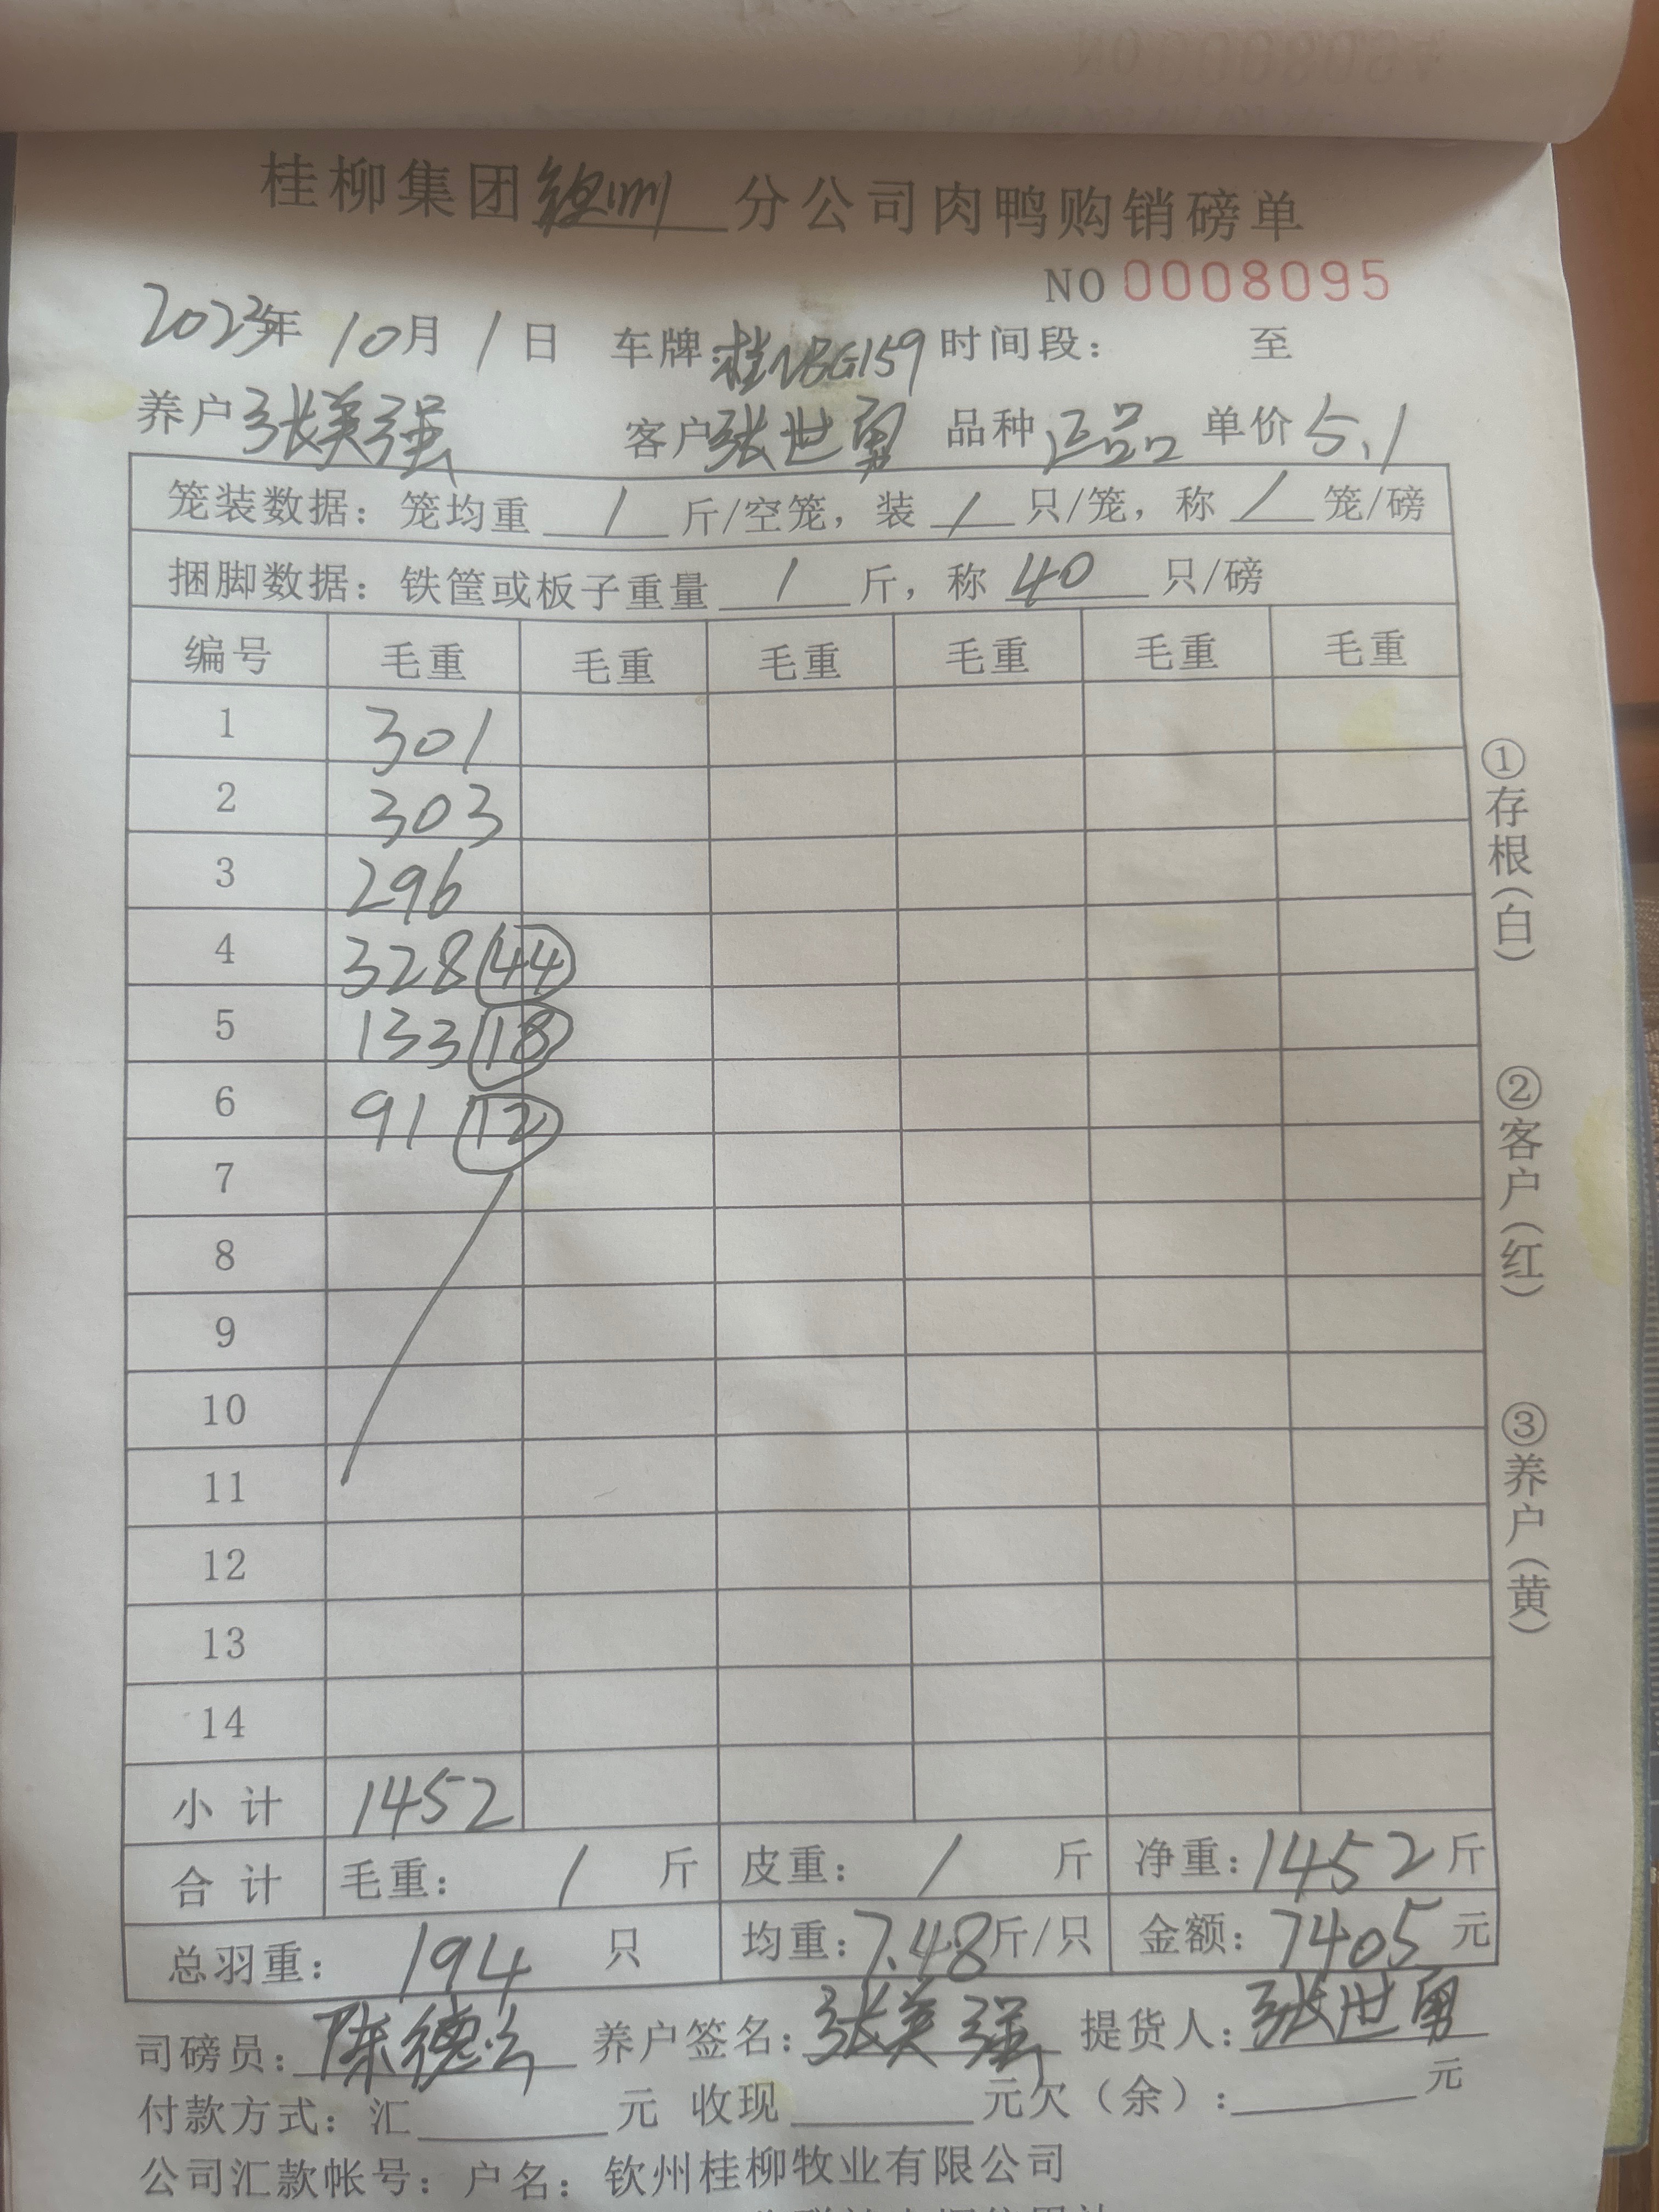 桂柳集团钦州分公司肉鸭购销磅单
NO 0008095
2023年 10月 1日 车牌:桂NBG159 时间段: 至
养户 张美强 客户 张世勇 品种 正品 单价 5.1
笼装数据: 笼均重 / 斤/空笼, 装 / 只/笼, 称 / 笼/磅
捆脚数据: 铁筐或板子重量 / 斤, 称 40 只/磅
编号 毛重 毛重 毛重 毛重 毛重 毛重
1 301
2 303
3 296
4 328 44
5 133 18
6 91 12
7
8
9
10
11
12
13
14
小计 1452
合计 毛重: / 斤 皮重: / 斤 净重: 1452 斤
总羽重: 194 只 均重: 7.48 斤/只 金额: 7405 元
司磅员: 陈德 养户签名: 张美强 提货人: 张世勇
付款方式: 汇 元 收现 元欠(余): 元
公司汇款帐号: 户名: 钦州桂柳牧业有限公司
①存根(白) ②客户(红) ③养户(黄)